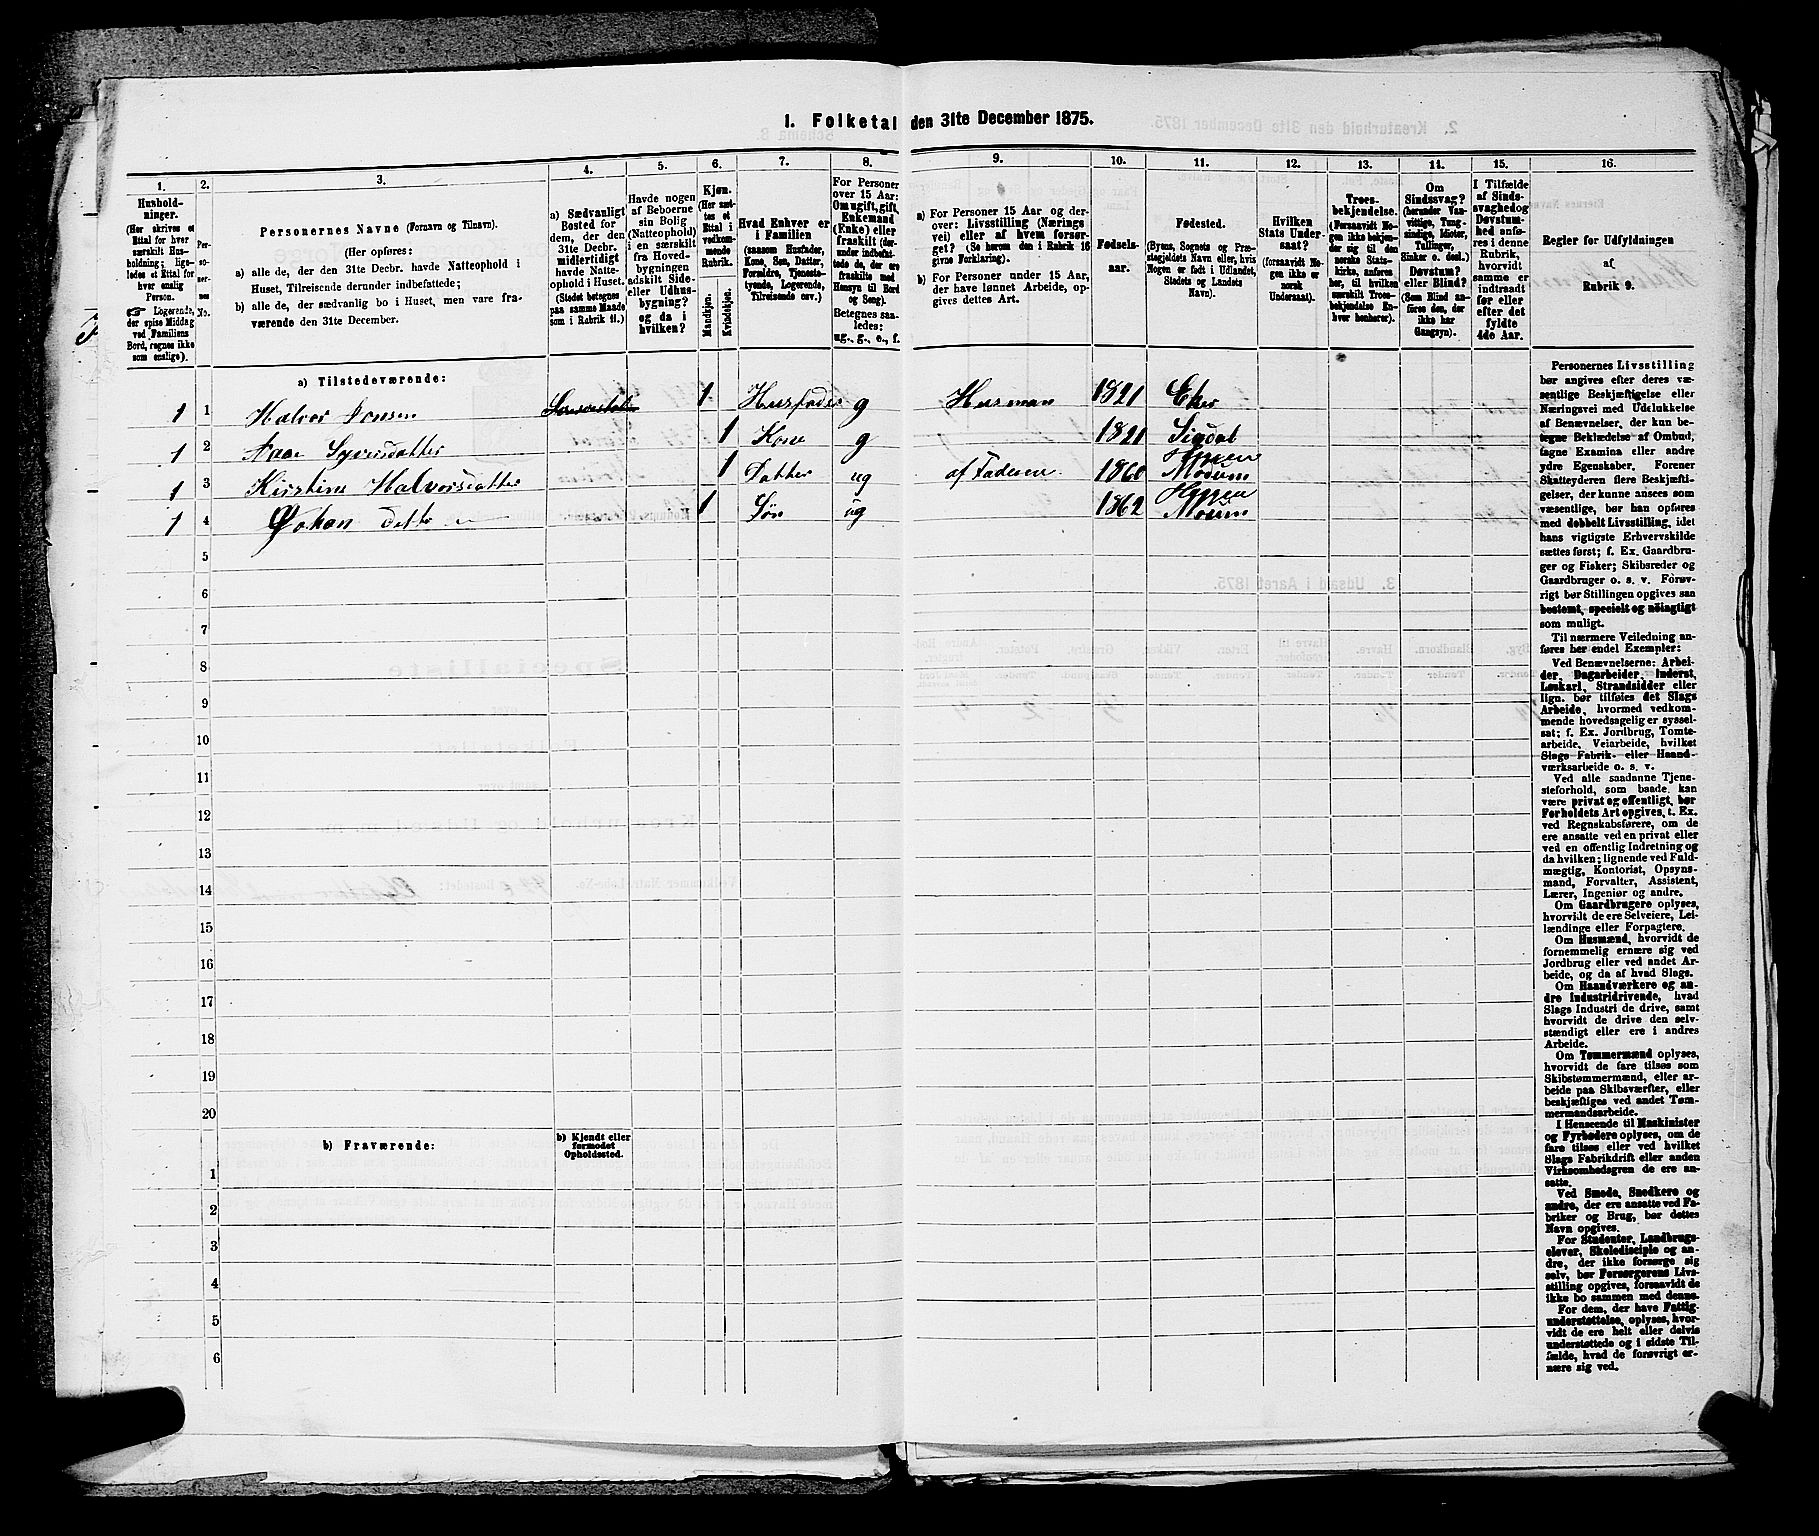 I. Folketal den 31te December 1875.
1.
2.
3.
4.
5.
6.
7.
8.
9.
10.
11.
12.
13.
14.
15.
16.
Husholdninger.
(Her skrives et
Ettal for hver
særskilt Husholdning;
ligeledes et Ettal for
hver enslig
Person.
☞ Logerende,
der spise Middag
ved Familiens
Bord, regnes ikke
som enslige).
Personernes
No.
Personernes Navne (Fornavn og Tilnavn).
(Her opføres:
a) alle de, der den 31te Decbr. havde Natteophold i
Huset, Tilreisende derunder indbefattede;
b) alle de, der sædvanlig bo i Huset, men vare fra-
værende den 31te December.
a) Sædvanligt
Bosted for
dem, der den
31te Decbr.
midlertidigt
havde Natte-
ophold i Huset.
(Stedet betegnes
paa samme Maade
som i Rubrik 11.)
Havde nogen
af Beboerne
sin Bolig
(Natteophold)
i en særskilt
fra Hoved-
bygningen
adskilt Side-
eller Udhus-
bygning?
og da i
hvilken?
Kjøn.
(Her sæt-
tes et
Ettal i
vedkom-
mende
Rubrik.
Mandkjøn.
Kvindekjøn.
Hvad Enhver er
i Familien
(saasom Husfader,
Kone, Søn, Datter,
Forældre, Tjeneste-
tyende, Logerende,
Tilreisende osv.)
For Personer
over 15 Aar:
Om ugift, gift,
Enkemand
(Enke) eller
fraskilt (der-
under indbefat-
tede de, der ere
fraskilte med
Hensyn til Bord
og Seng).
Betegnes saa-
ledes:
ug., g., e., f.
a) For Personer 15 Aar og der-
over: Livsstilling (Nærings-
vei) eller af hvem forsør-
get? (Se herom den i Rubrik 16
givne Forklaring).
b) For Personer under 15 Aar,
der have lønnet Arbeide, op-
gives dettes Art.
Fødsels-
aar.
Fødested.
(Byens, Sognets og Præ-
stegjeldets Navn eller, hvis
Nogen er født i Udlandet,
Stedets og Landets
Navn).
Hvilken
Stats Under-
saat?
(forsaavidt No-
gen ikke er
norsk
Undersaat).
Troes-
bekjendelse.
(Forsaavidt No-
gen ikke bekjen-
der sig til den
norske Stats-
kirke, anføres
her, til hvilken
særskilt Troes-
bekjendelse En-
hver henhører).
Om
Sindssvag?
(herunder Van-
vittige, Tung-
sindige, Idioter,
Tullinger,
Sinker o. desl.)
Døvstum?
eller Blind?
(Som Blind an-
føres den, der
ikke har
Gangsyn).
I Tilfælde
af Sinds-
svaghed og
Døvstum-
hed anføres
i denne
Rubrik,
hvorvidt
samme er
indtraadt
før eller
efter det
fyldte
4de Aar.
Regler for Udfyldningen
af
Rubrik 9.
a) Tilstedeværende:
1 1 Halvor Jonsen 1 Husfader g Husmand 1821 Eker
1 2 Aase Syversdatter 1 Kone g 1821 Sigdal
1 3 Kirstine Halvorsdatter 1 Datter ug af Faderen 1860 Modum
1 4 Johan dette 1 Søn ug 1862 Modum
5
6
7
8
9
10
11
12
13
14
15
16
17
18
19
20
b) Fraværende:
b) Kjendt eller
formodet
Opholdssted.
1
2
3
4
5
6
Personernes Livsstilling
bør angives efter deres væ-
sentlige Beskjæftigelse eller
Næringsvei med Udelukkelse
af Benævnelser, der kun be-
tegne Beklædelse af Ombud,
tagne Examina eller andre
ydre Egenskaber. Forener
Skatteyderen flere Beskjæfti-
gelser, der kunne ansees som
væsentlige, bør han opføres
med dobbelt Livsstilling, idet
hans vigtigste Erhvervskilde
sættes først; f. Ex. Gaardbru-
ger og Fisker; Skibsreder og
Gaardbruger o. s. v. Forøv-
rigt bør Stillingen opgives saa
bestemt, specielt og nøiagtigt
som muligt.
Til nærmere Veiledning an-
føres her endel Exempler:
Ved Benævnelserne: Arbei-
der, Dagarbeider, Inderst,
Løskarl, Strandsidder eller
lign. bør tilføies det Slags
Arbeide, hvormed vedkom-
mende hovedsagelig er syssel-
sat; f. Ex. Jordbrug, Tomte-
arbeide, Veiarbeide, hvilket
Slags Fabrik- eller Haand-
værksarbeide o. s. v.
Ved alle saadanne Tjene-
steforhold, som baade kan
være privat og offentligt, bør
Forholdets Art opgives, t. Ex.
ved Regnskabsførere, om de
ere ansatte ved en privat eller
ved en offentlig Indretning og
da hvilken; lignende ved Fuld-
mægtig, Kontorist, Opsyns-
mand, Forvalter, Assistent,
Lærer, Ingeniør og andre.
Om Gaardbrugere oplyses,
hvorvidt de ere Selveiere, Lei-
lændinge eller Forpagtere.
Om Husmænd, hvorvidt de
fornemmelig ernære sig ved
Jordbrug eller ved andet Ar-
beide, og da af hvad Slags.
Om Haandværkere og an-
dre Industridrivende, hvad
Slags Industri de drive, samt
hvorvidt de drive den selv-
stændigt eller ere i andres
Arbeide.
Om Tømmermænd oplyses,
hvorvidt de fare tilsøs som
Skibstømmermænd, eller ar-
beide paa Skibsværfter, eller
beskjæftiges ved andet Tøm-
mermandsarbeide.
I Henseende til Maskinister
og Fyrbødere oplyses, om de
fare tilsøs eller ved hvilket
Slags Fabrikdrift eller anden
Virksomhedsgren de ere an-
satte.
Ved Smede, Snedkere og
andre, der ere ansatte ved Fa-
briker og Brug, bør dettes
Navn opgives.
For Studenter, Landbrugs-
elever, Skoledisciple og an-
dre, der ikke forsørge sig
selv, bør Forsørgerens Livs-
stilling opgives, forsaavidt de
ikke bo sammen med denne.
For dem, der have Fattig-
understøttelse, oplyses, hvor-
vidt de ere helt eller delvis
understøttede og i sidste Til-
fælde, hvad de forøvrigt er-
nære sig ved.